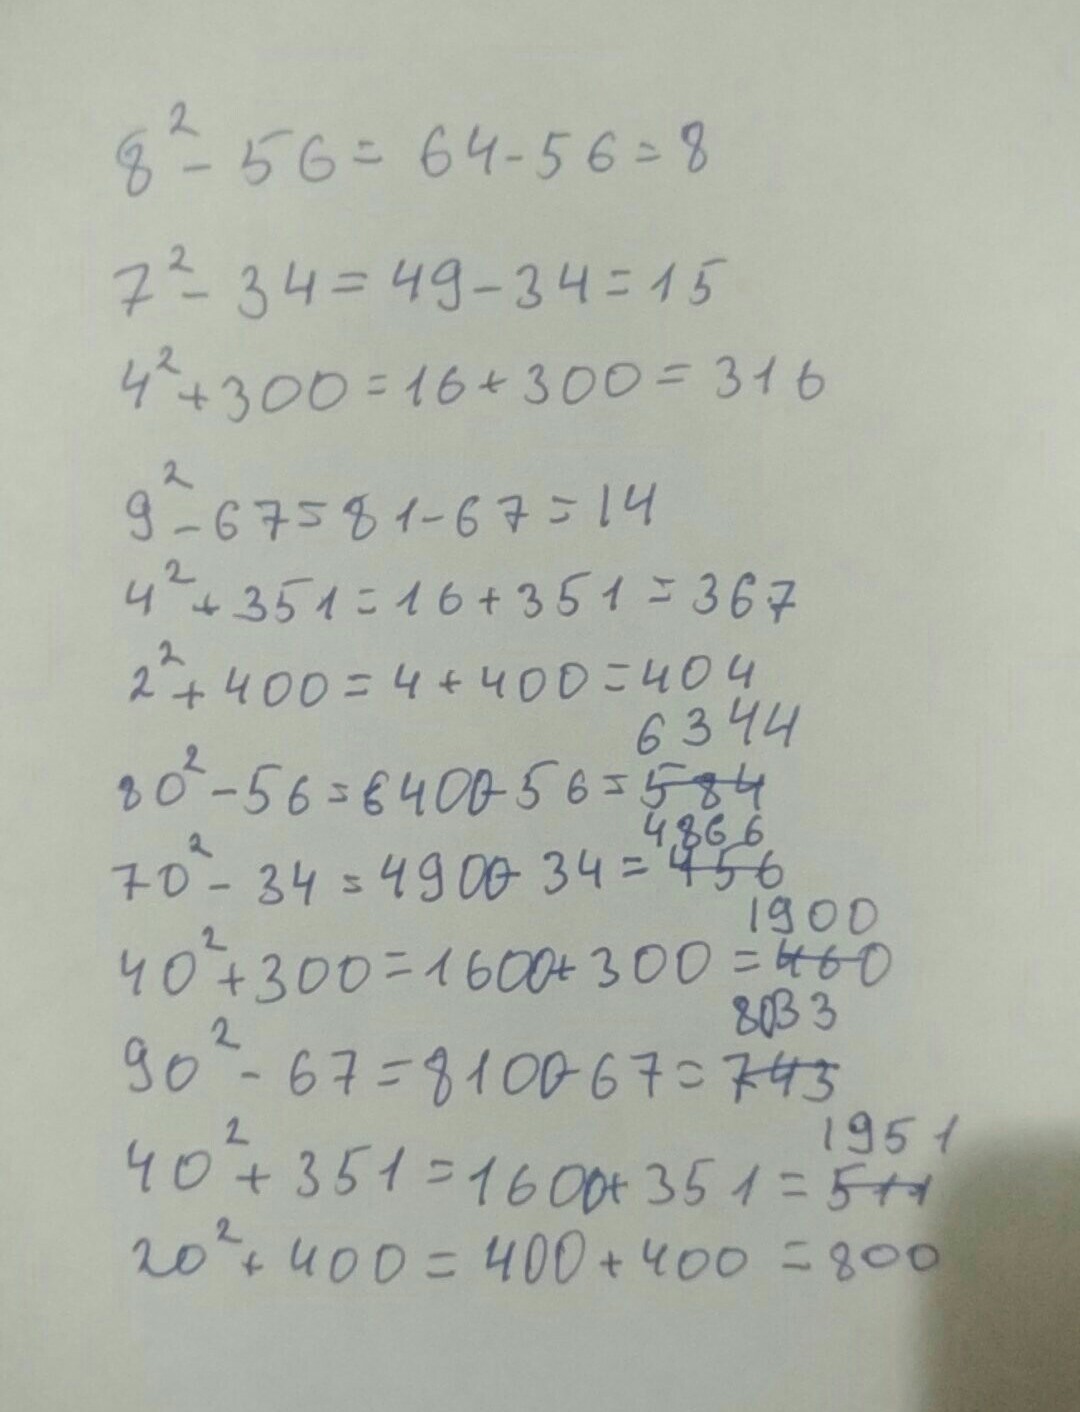 8² - 56 = 64 - 56 = 8
7² - 34 = 49 - 34 = 15
4² + 300 = 16 + 300 = 316
9² - 67 = 81 - 67 = 14
4² + 351 = 16 + 351 = 367
2² + 400 = 4 + 400 = 404
6344
80² - 56 = 6400 - 56 = 584
4866
70² - 34 = 4900 - 34 = 456
1900
40² + 300 = 1600 + 300 = 460
8033
90² - 67 = 8100 - 67 = 743
1951
40² + 351 = 1600 + 351 = 511
20² + 400 = 400 + 400 = 800